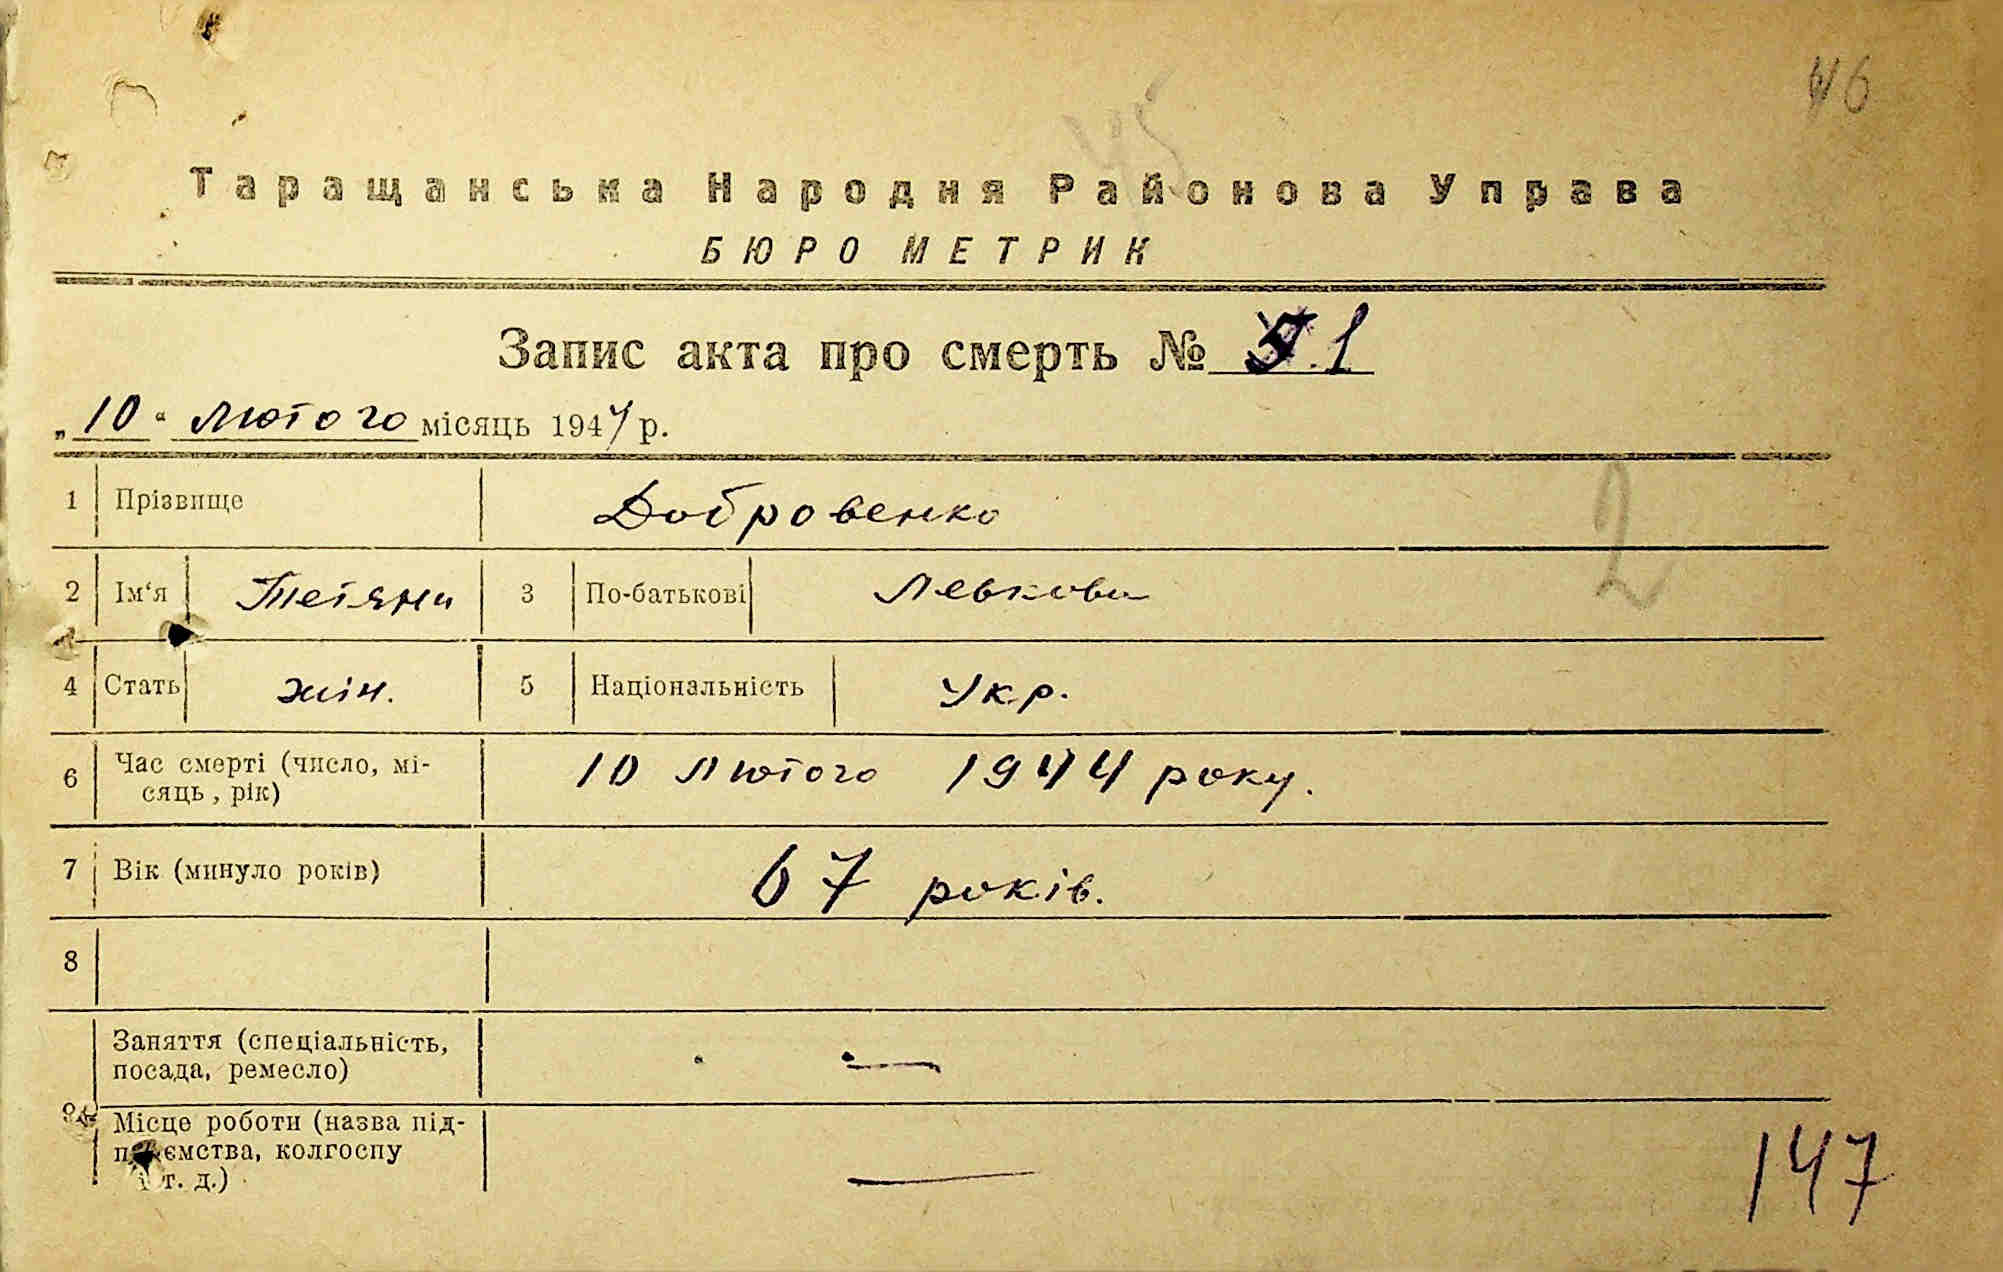 46
45
Таращанська Народня Районова Управа
БЮРО МЕТРИК
Запис акта про смерть № 51
„10“ лютого місяць 1944 р.
1 Прізвище Добровенко
2
2 Ім‘я Тетяна 3 По-батькові Левкова
4 Стать жін. 5 Національність Укр.
6 Час смерті (число, мі-
сяць, рік) 10 лютого 1944 року.
7 Вік (минуло років) 67 років.
8
Заняття (спеціальність,
посада, ремесло) —
Місце роботи (назва під-
приємства, колгоспу
і т. д.) —
147